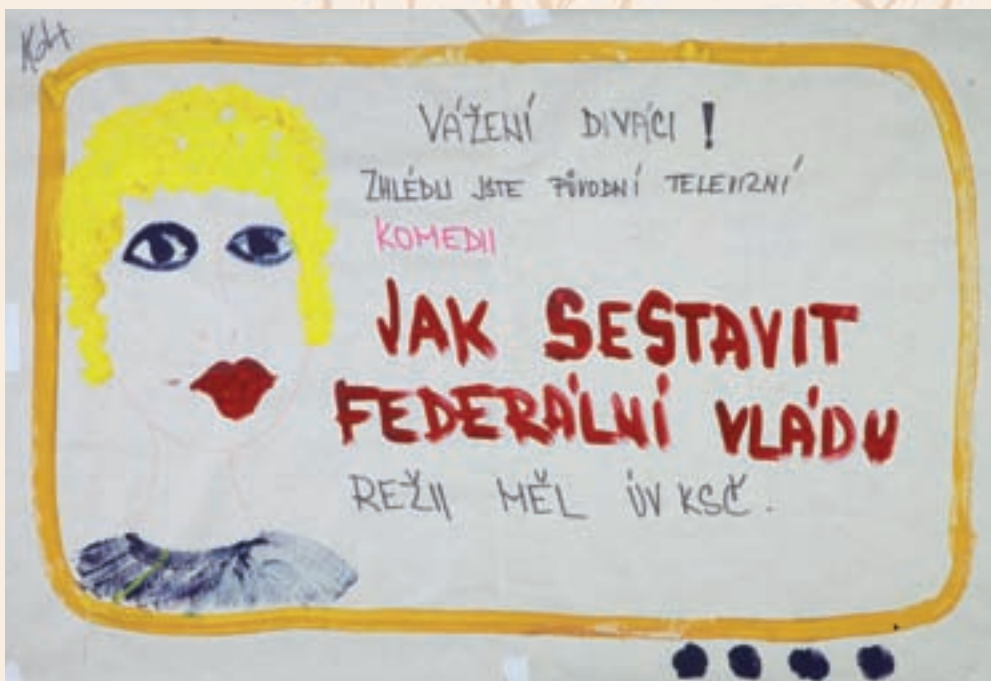 VÁŽENÍ DIVÁCI !
ZHLÉDLI JSTE PŮVODNÍ TELEVIZNÍ
KOMEDII
JAK SESTAVIT
FEDERÁLNÍ VLÁDU
REŽII MĚL ÚV KSČ.